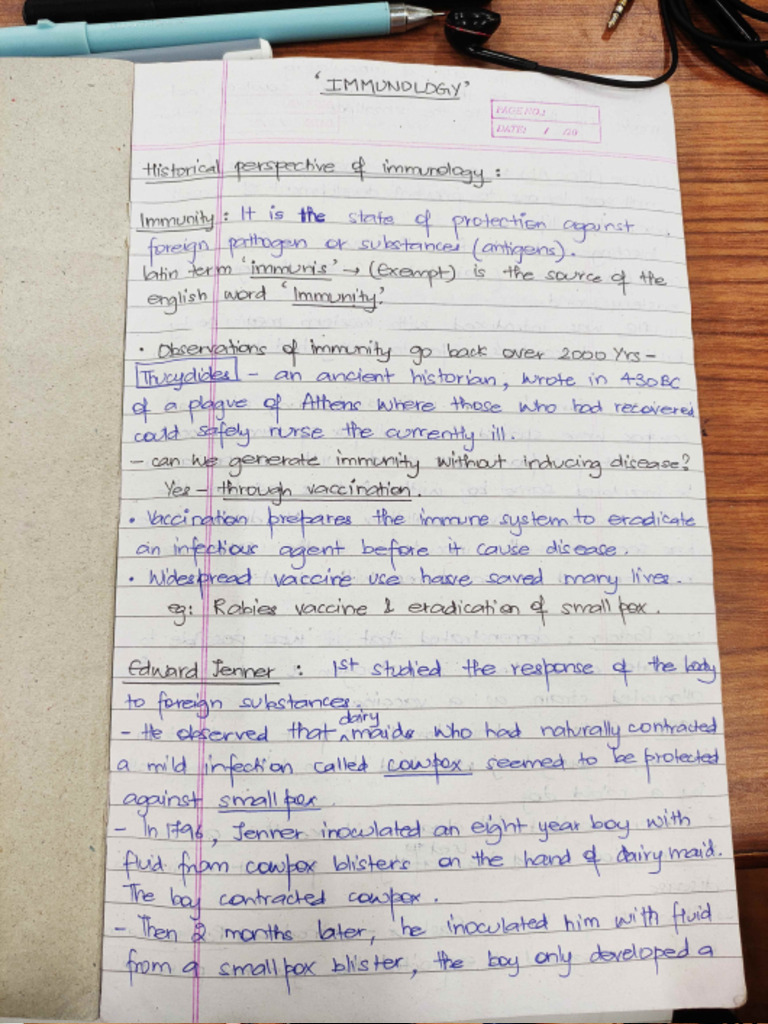 'IMMUNOLOGY'
PAGE NO.:
DATE: / /20
Historical perspective of immunology :
Immunity : It is the state of protection against
foreign pathogen or substances (antigens).
latin term 'immunis' → (exempt) is the source of the
english word 'Immunity'.
• Observations of immunity go back over 2000 Yrs -
Thucydides - an ancient historian, wrote in 430BC
of a plague of Athens where those who had recovered
could safely nurse the currently ill.
- can we generate immunity without inducing disease?
Yes - through vaccination.
• Vaccination prepares the immune system to eradicate
an infectious agent before it cause disease.
• Widespread vaccine use have saved many lives.
eg: Rabies vaccine & eradication of small pox.
Edward Jenner : 1st studied the response of the body
to foreign substances.
- He observed that dairy maids who had naturally contracted
a mild infection called cowpox seemed to be protected
against small pox.
- In 1796, Jenner inoculated an eight year boy with
fluid from cowpox blisters on the hand of dairy maid.
The boy contracted cowpox.
- Then 2 months later, he inoculated him with fluid
from a small pox blister, the boy only developed a